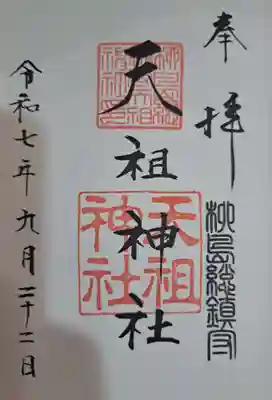 奉拝
柳島総鎮守
天祖神社
天祖
神社
令和七年九月二十二日